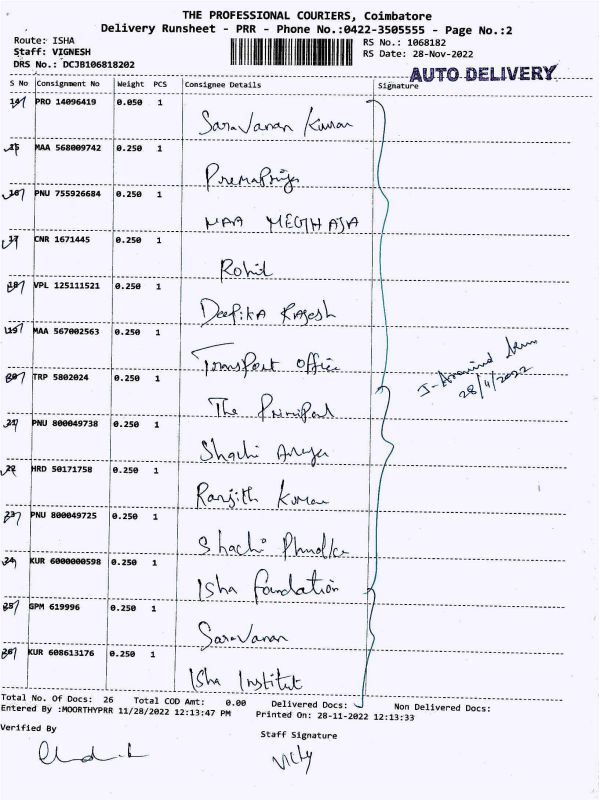 THE PROFESSIONAL COURIERS, Coimbatore
Delivery Runsheet - PRR - Phone No.:0422-3505555 - Page No.:2
Route: ISHA
Staff: VIGNESH
DRS No.: DCJB106818202
RS No.: 1068182
RS Date: 28-Nov-2022
AUTO DELIVERY
S No Consignment No Weight PCS Consignee Details Signature
14 PRO 14096419 0.050 1
Saravanan Kumar
15 MAA 568009742 0.250 1
Premapriya
16 PNU 755926684 0.250 1
MAA MEGHAJA
17 CNR 1671445 0.250 1
Rohit
18 VPL 125111521 0.250 1
Deepika Rajesh
19 MAA 567002563 0.250 1
Transport Office
20 TRP 5802024 0.250 1
The Principal
28/4/2022
21 PNU 800049738 0.250 1
Shachi
22 HRD 50171758 0.250 1
Ranjith Kumar
23 PNU 800049725 0.250 1
Shachi
24 KUR 6000000598 0.250 1
Isha Foundation
25 GPM 619996 0.250 1
Saravanan
26 KUR 608613176 0.250 1
Isha Institut
Total No. Of Docs: 26 Total COD Amt: 0.00 Delivered Docs: Non Delivered Docs:
Entered By :MOORTHYPRR 11/28/2022 12:13:47 PM Printed On: 28-11-2022 12:13:33
Verified By
Staff Signature
Vicky